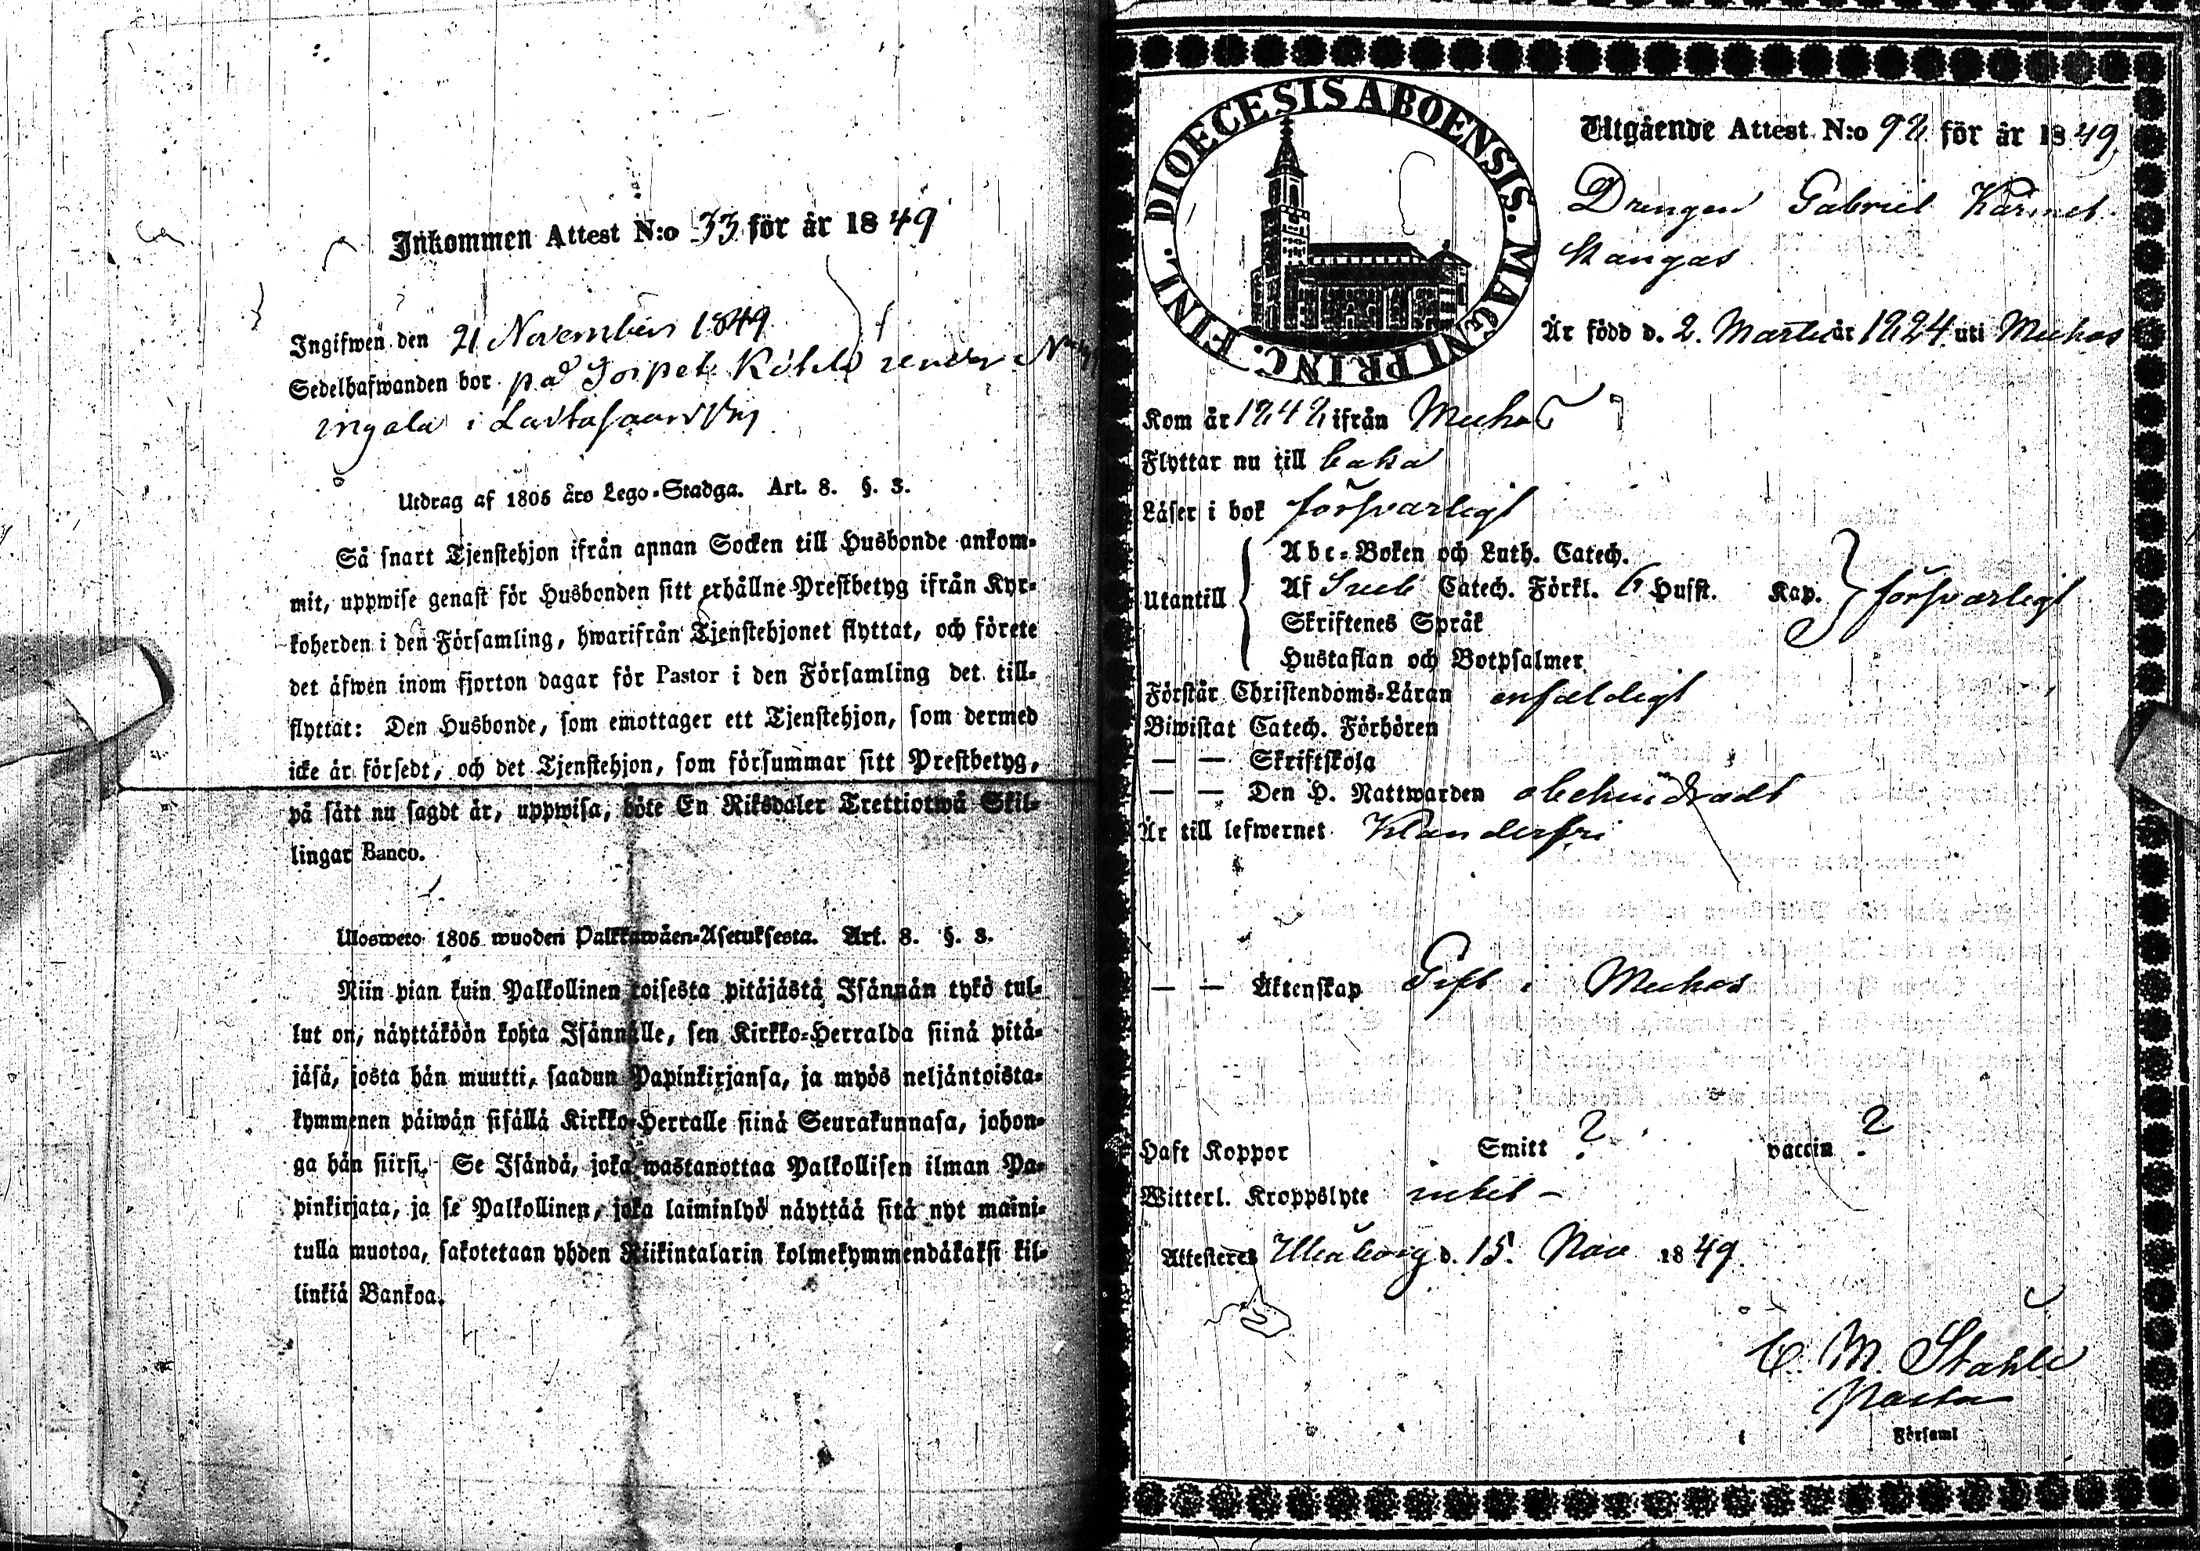 Inkommen Attest N:o 33 för år 1849
Ingifwen den 21 November 1849
Sedelhafwanden bor på Torpet
i
Utdrag af 1805 års Lego-Stadga. Art. 8. §. 3.
Så snart Tjenstehjon ifrån annan Socken till Husbonde ankom-
mit, uppwise genast för Husbonden sitt erhållne Prestbetyg ifrån Kyr-
koherden i den Församling, hwarifrån Tjenstehjonet flyttat, och förete
det äfwen inom fjorton dagar för Pastor i den Församling det till-
flyttat: Den Husbonde, som emottager ett Tjenstehjon, som dermed
icke är försedt, och det Tjenstehjon, som försummar sitt Prestbetyg,
på sätt nu sagdt är, uppwisa, böte En Riksdaler Trettiotwå Skil-
lingar Banco.
Ulosweto 1805 wuoden Palkkawäen-Asetuksesta. Art. 8. §. 3.
Niin pian kuin Palkollinen toisesta pitäjästä Isännän tykö tul-
lut on, näyttäköön kohta Isännälle, sen Kirkko-Herralda siinä pitä-
jäsä, josta hän muutti, saadun Papinkirjansa, ja myös neljäntoista-
kymmenen päiwän sisällä Kirkko-Herralle siinä Seurakunnasa, johon-
ga hän siirsi. Se Isändä, joka wastanottaa Palkollisen ilman Pa-
pinkirjata, ja se Palkollinen, joka laiminlyö näyttää sitä nyt maini-
tulla muotoa, sakotetaan yhden Riikintalarin kolmekymmendäkaksi kil-
linkiä Bankoa.
DIOECESIS ABOENSIS. MAGNI PRINC. FINL.
Utgående Attest N:o 92 för år 1849.
Drengen Gabriel
Kangas
Är född d. 2. Martii år 1824 uti Muhos
Kom år 1842 ifrån Muhos
Flyttar nu till baka
Läser i bok försvarligt
Utantill
Abc-Boken och Luth. Catech.
Af Sveb Catech. Förkl. 6 Hufst. Kap. försvarligt
Skriftenes Språk
Hustaflan och Botpsalmer
Förstår Christendoms-Läran enfaldigt
Biwistat Catech. Förhören
— — Skriftskola
— — Den H. Nattwarden obehindradt
Är till lefwernet Klanderfri
— — Äktenskap Gift i Muhos
Haft Koppor Smitt ? vaccin ?
Witterl. Kroppslyte intet –
Attesteres Uleåborg d. 15. Nov 1849.
C. M. Stahle
Pastor
Församl